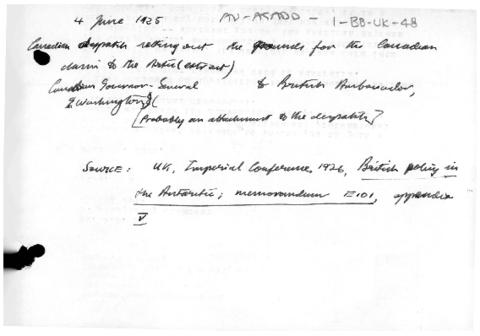 4 June 1925 AU-ASADD - 1-BB-UK-48
Canadian despatch setting out the grounds for the Canadian
claim to the Arctic (extract)
Canadian Governor-General to British Ambassador,
Washington
[Probably an attachment to the despatch]
Source: UK, Imperial Conference, 1926, British policy in
the Antarctic; memorandum E101, appendix
V